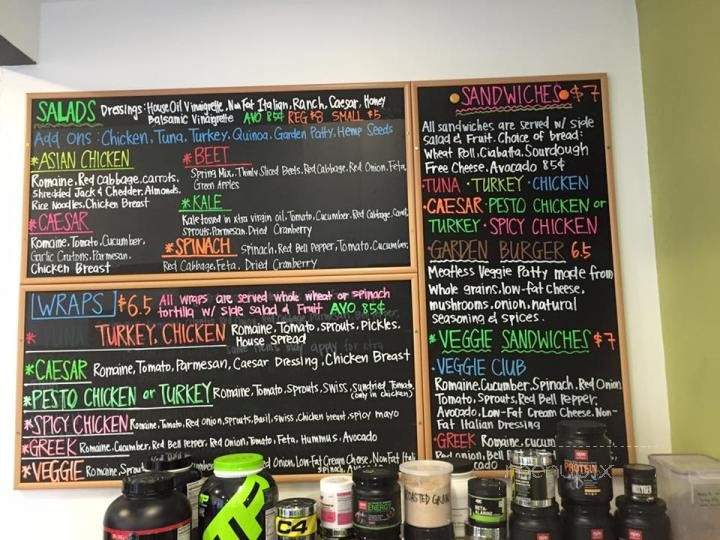 SALADS Dressings: House Oil Vinaigrette, Non Fat Italian, Ranch, Caesar, Honey
Balsamic Vinaigrette AVO 85¢ REG $8 SMALL $5
Add ons: Chicken, Tuna, Turkey, Quinoa, Garden Patty, Hemp Seeds
*ASIAN CHICKEN
Romaine, Red Cabbage, carrots,
Shredded Jack & Chedder, Almonds,
Rice Noodles, Chicken Breast
*CAESAR
Romaine, Tomato, Cucumber,
Garlic Crutons, Parmesan,
Chicken Breast
*BEET
Spring Mix, Thinly Sliced Beets, Red Cabbage, Red Onion, Feta,
Green Apples
*KALE
Kale tossed in xtra virgin oil, Tomato, Cucumber, Red Cabbage,
Sprouts, Parmesan, Dried Cranberry
*SPINACH Spinach, Red Bell Pepper, Tomato, Cucumber,
Red Cabbage, Feta, Dried Cranberry
WRAPS $6.5 All wraps are served whole wheat or spinach
tortilla w/ side Salad & Fruit AVO 85¢
TURKEY, CHICKEN Romaine, Tomato, Sprouts, Pickles,
House Spread
*CAESAR Romaine, Tomato, Parmesan, Caesar Dressing, Chicken Breast
*PESTO CHICKEN or TURKEY Romaine, Tomato, Sprouts, Swiss, Sundried Tomato
(only in chicken)
*SPICY CHICKEN Romaine, Tomato, Red onion, sprouts, Basil, swiss, Chicken breast, spicy mayo
*GREEK Romaine, Cucumber, Red Bell Pepper, Red Onion, Tomato, Feta, Hummus, Avocado
*VEGGIE Romaine, Onion, Low-Fat Cream Chese, Non Fat Itali
Spinach, Avocado
SANDWICHES $7
All sandwiches are served w/ side
Salad & Fruit. Choice of bread:
Wheat Roll, Ciabatta, Sourdough
Free Cheese, Avocado 85¢
·TUNA ·TURKEY ·CHICKEN
·CAESAR ·PESTO CHICKEN or
TURKEY ·SPICY CHICKEN
·GARDEN BURGER 6.5
Meatless Veggie Patty made from
Whole grains, low-fat cheese,
mushrooms, onion, natural
seasoning & spices.
*VEGGIE SANDWICHES $7
·VEGGIE CLUB
Romaine, Cucumber, Spinach, Red Onion,
Tomato, Sprouts, Red Bell Pepper,
Avocado, Low-Fat Cream Cheese, Non-
Fat Italian Dressing
·GREEK Romaine, cucum
Red onion, Bell
cado
menupix
C4
ENERGY
ROASTED
BETA-ALANINE
PROTEIN
MP